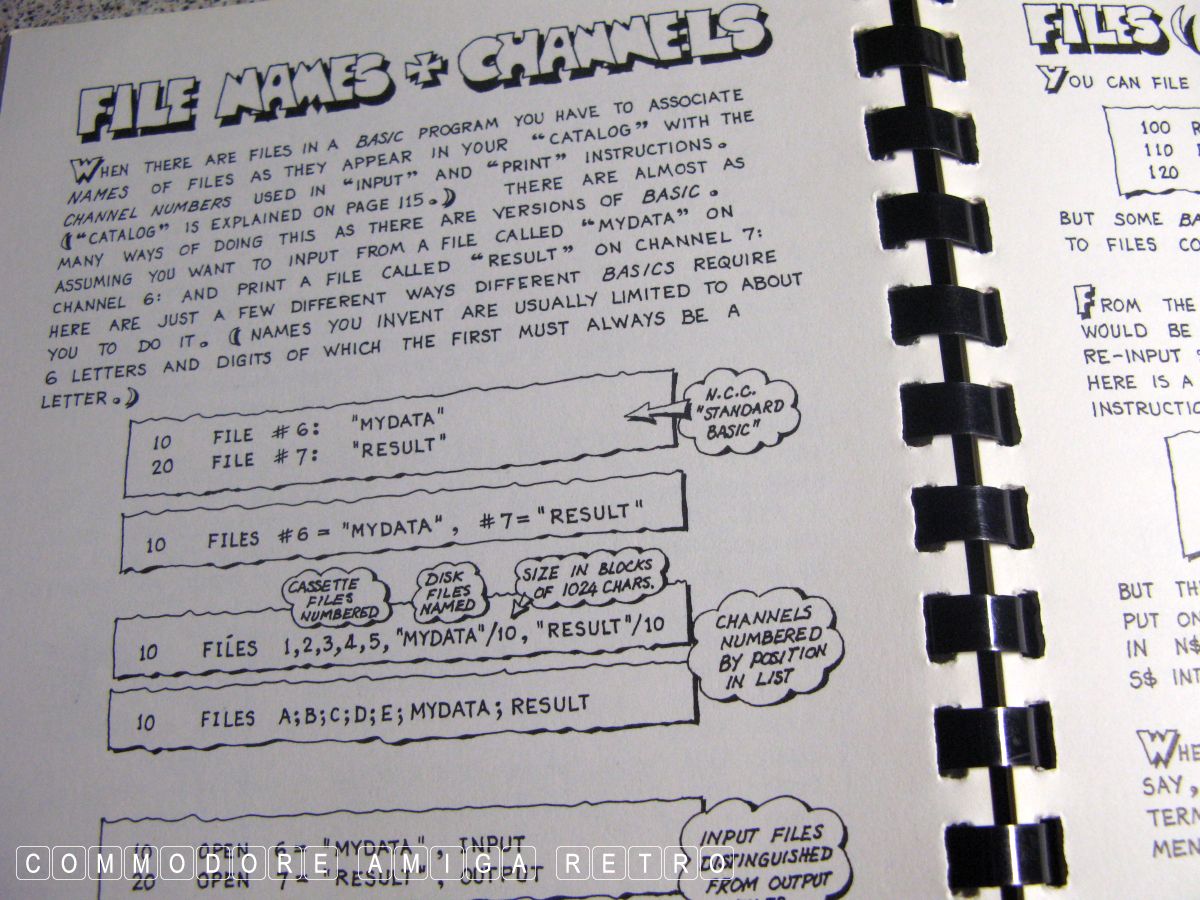 FILE NAMES + CHANNELS
WHEN THERE ARE FILES IN A BASIC PROGRAM YOU HAVE TO ASSOCIATE
NAMES OF FILES AS THEY APPEAR IN YOUR "CATALOG" WITH THE
CHANNEL NUMBERS USED IN "INPUT" AND "PRINT" INSTRUCTIONS.
("CATALOG" IS EXPLAINED ON PAGE 115.) THERE ARE ALMOST AS
MANY WAYS OF DOING THIS AS THERE ARE VERSIONS OF BASIC.
ASSUMING YOU WANT TO INPUT FROM A FILE CALLED "MYDATA" ON
CHANNEL 6: AND PRINT A FILE CALLED "RESULT" ON CHANNEL 7:
HERE ARE JUST A FEW DIFFERENT WAYS DIFFERENT BASICS REQUIRE
YOU TO DO IT. (NAMES YOU INVENT ARE USUALLY LIMITED TO ABOUT
6 LETTERS AND DIGITS OF WHICH THE FIRST MUST ALWAYS BE A
LETTER.)
10 FILE #6: "MYDATA"
20 FILE #7: "RESULT"
N.C.C.
"STANDARD
BASIC"
10 FILES #6 = "MYDATA", #7 = "RESULT"
CASSETTE
FILES
NUMBERED
DISK
FILES
NAMED
SIZE IN BLOCKS
OF 1024 CHARS.
10 FILES 1,2,3,4,5, "MYDATA"/10, "RESULT"/10
10 FILES A;B;C;D;E; MYDATA; RESULT
CHANNELS
NUMBERED
BY POSITION
IN LIST
10 OPEN 6 = "MYDATA", INPUT
20 OPEN 7 = "RESULT", OUTPUT
INPUT FILES
DISTINGUISHED
FROM OUTPUT
COMMODORE AMIGA RETRO
FILES (
YOU CAN FILE
100
110
120
BUT SOME
TO FILES
FROM THE
WOULD BE
RE-INPUT
HERE IS A
BUT
PUT
IN N$
S$
SAY,